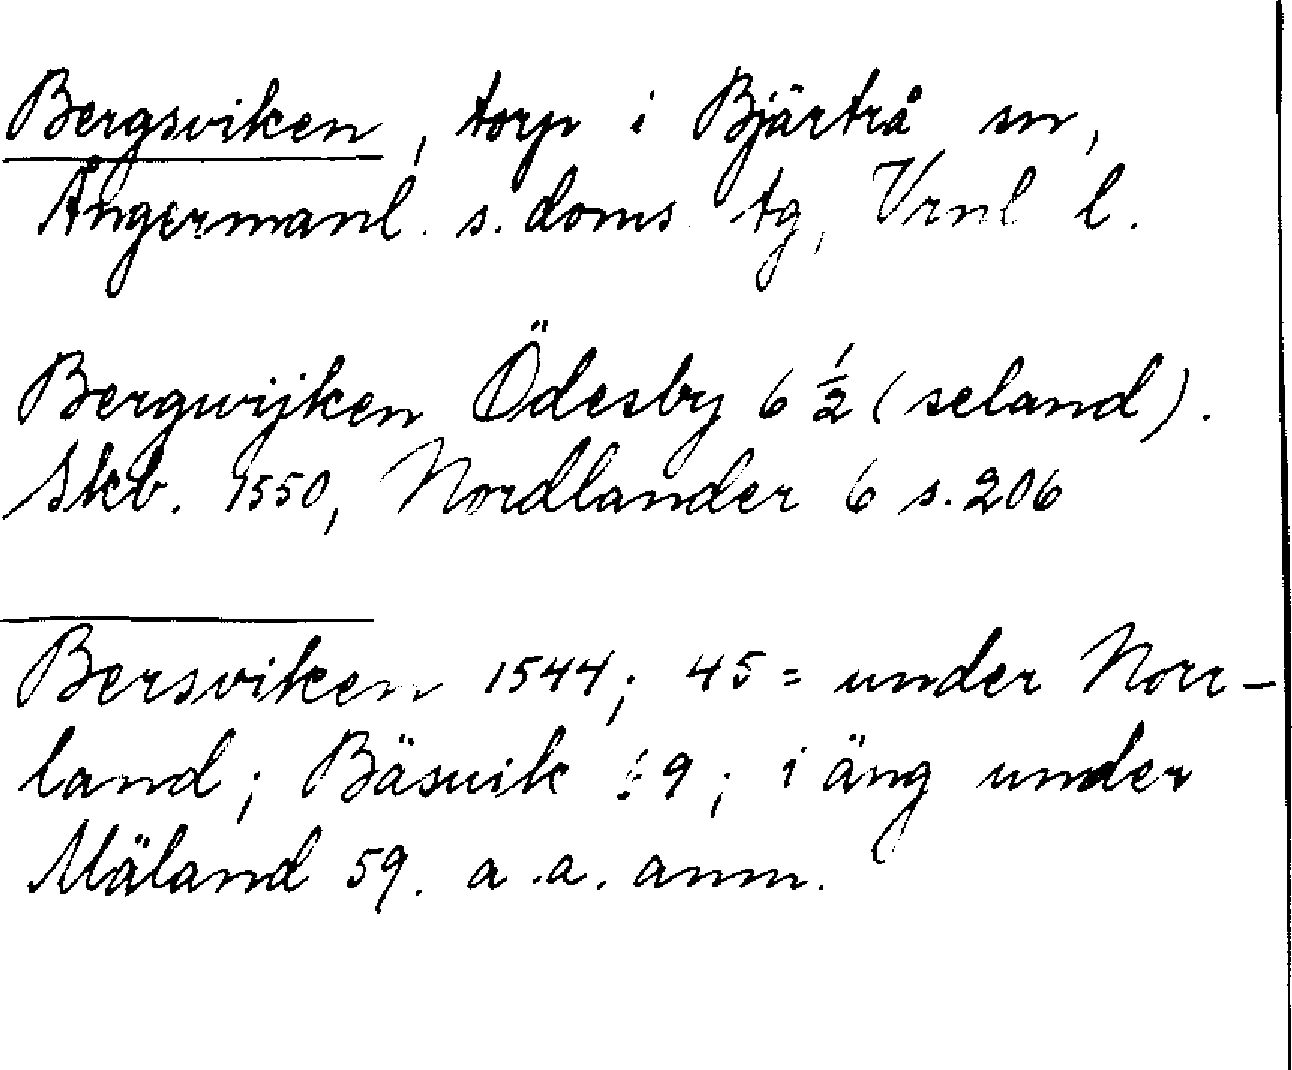 Bergsviken, torp i Bjärtrå sn,
Ångermanl. s. doms. tg, Vrnl l.
Bergwijken Ödesby 6 1/2 (seland).
Skb. 1550, Nordlander 6 s. 206
Bersviken 1544; 45 = under Norr-
land; Bäsvik 9; i äng under
Mäland 59. a. a. anm.